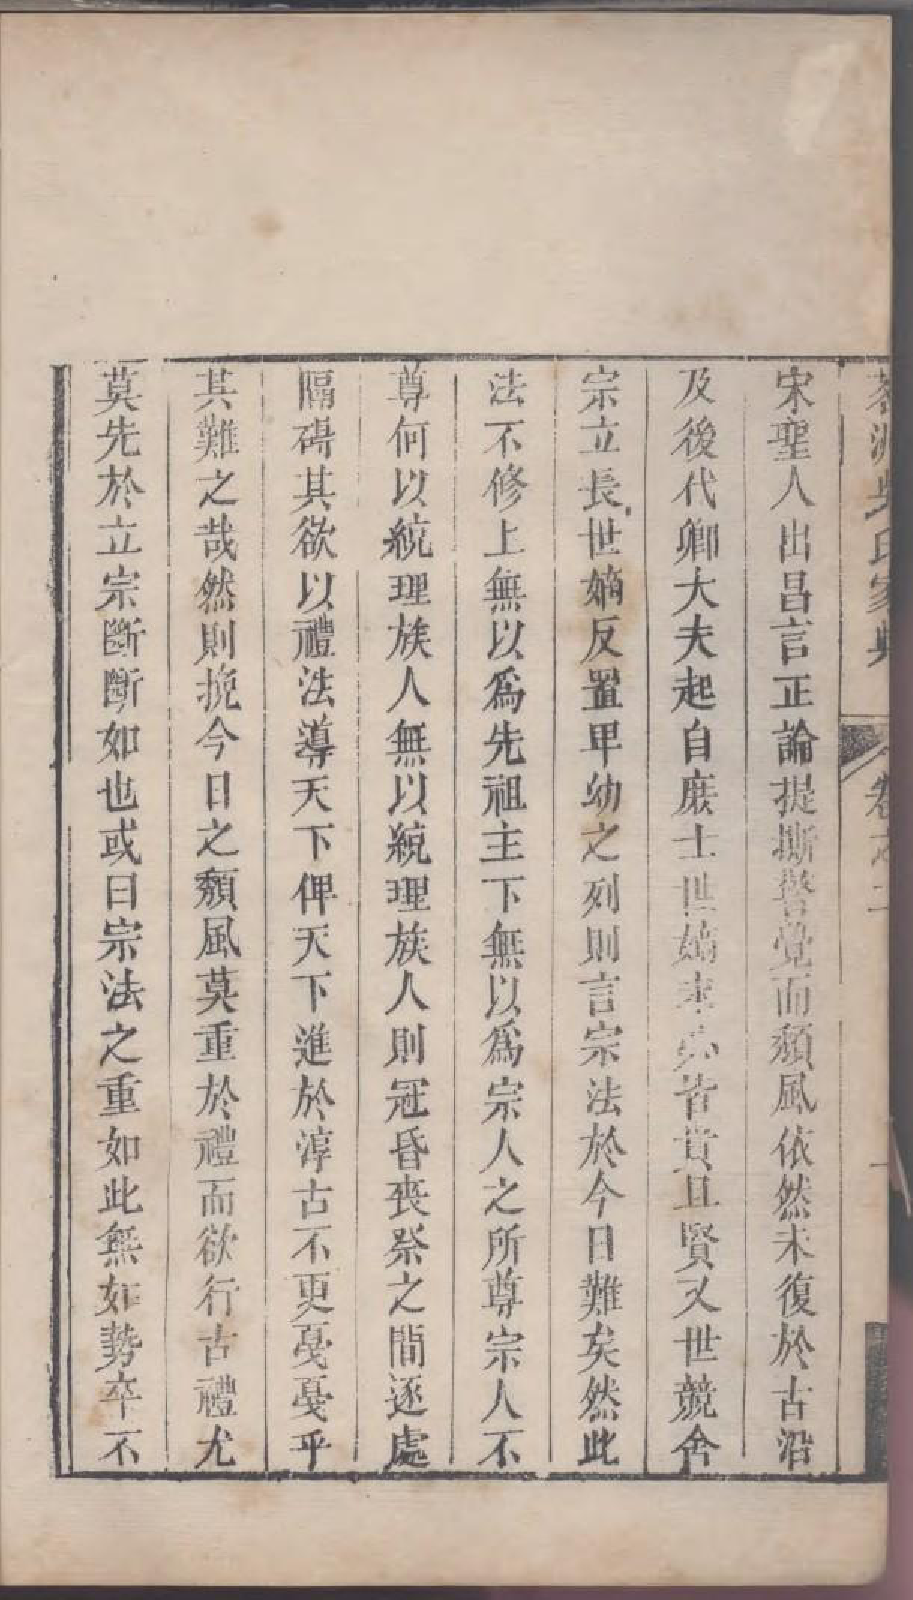 茗洲吳氏家典 卷之二 一
宋聖人出昌言正論提撕警覺而頹風依然未復於古沿
及後代卿大夫起自庶士世嫡未必皆貴且賢又世競舍
宗立長世嫡反置卑幼之列則言宗法於今日難矣然此
法不修上無以爲先祖主下無以爲宗人之所尊宗人不
尊何以統理族人無以統理族人則冠昏喪祭之間逐處
隔礙其欲以禮法導天下俾天下進於淳古不更戞戞乎
其難之哉然則挽今日之頹風莫重於禮而欲行古禮尤
莫先於立宗斷斷如也或曰宗法之重如此無如勢卒不